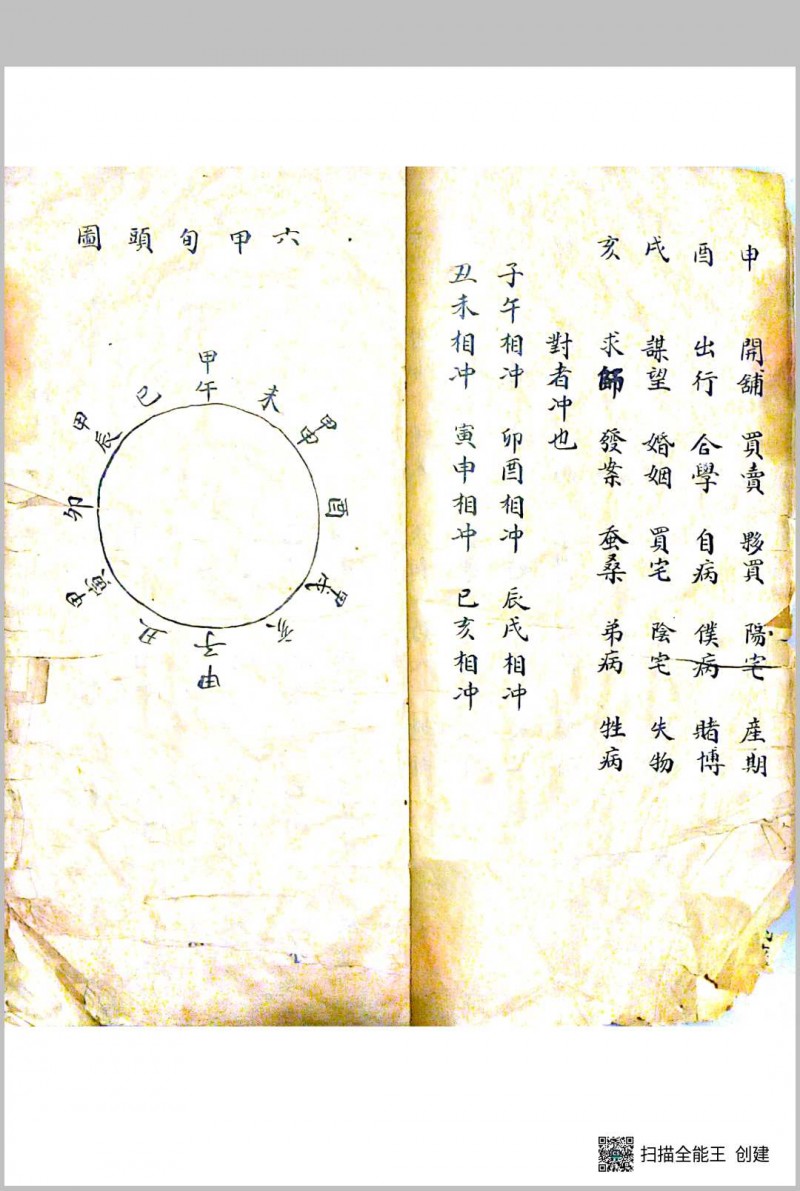 申 開舖 買賣 夥買 陽宅 産期
酉 出行 合學 自病 僕病 賭博
戌 謀望 婚姻 買宅 陰宅 失物
亥 求師 發案 蚕桑 弟病 牲病
對者冲也
子午相冲 卯酉相冲 辰戌相冲
丑未相冲 寅申相冲 巳亥相冲
六甲旬頭圖
甲午
未
甲申
酉
甲戌
亥
甲子
丑
甲寅
卯
甲辰
巳
扫描全能王 创建